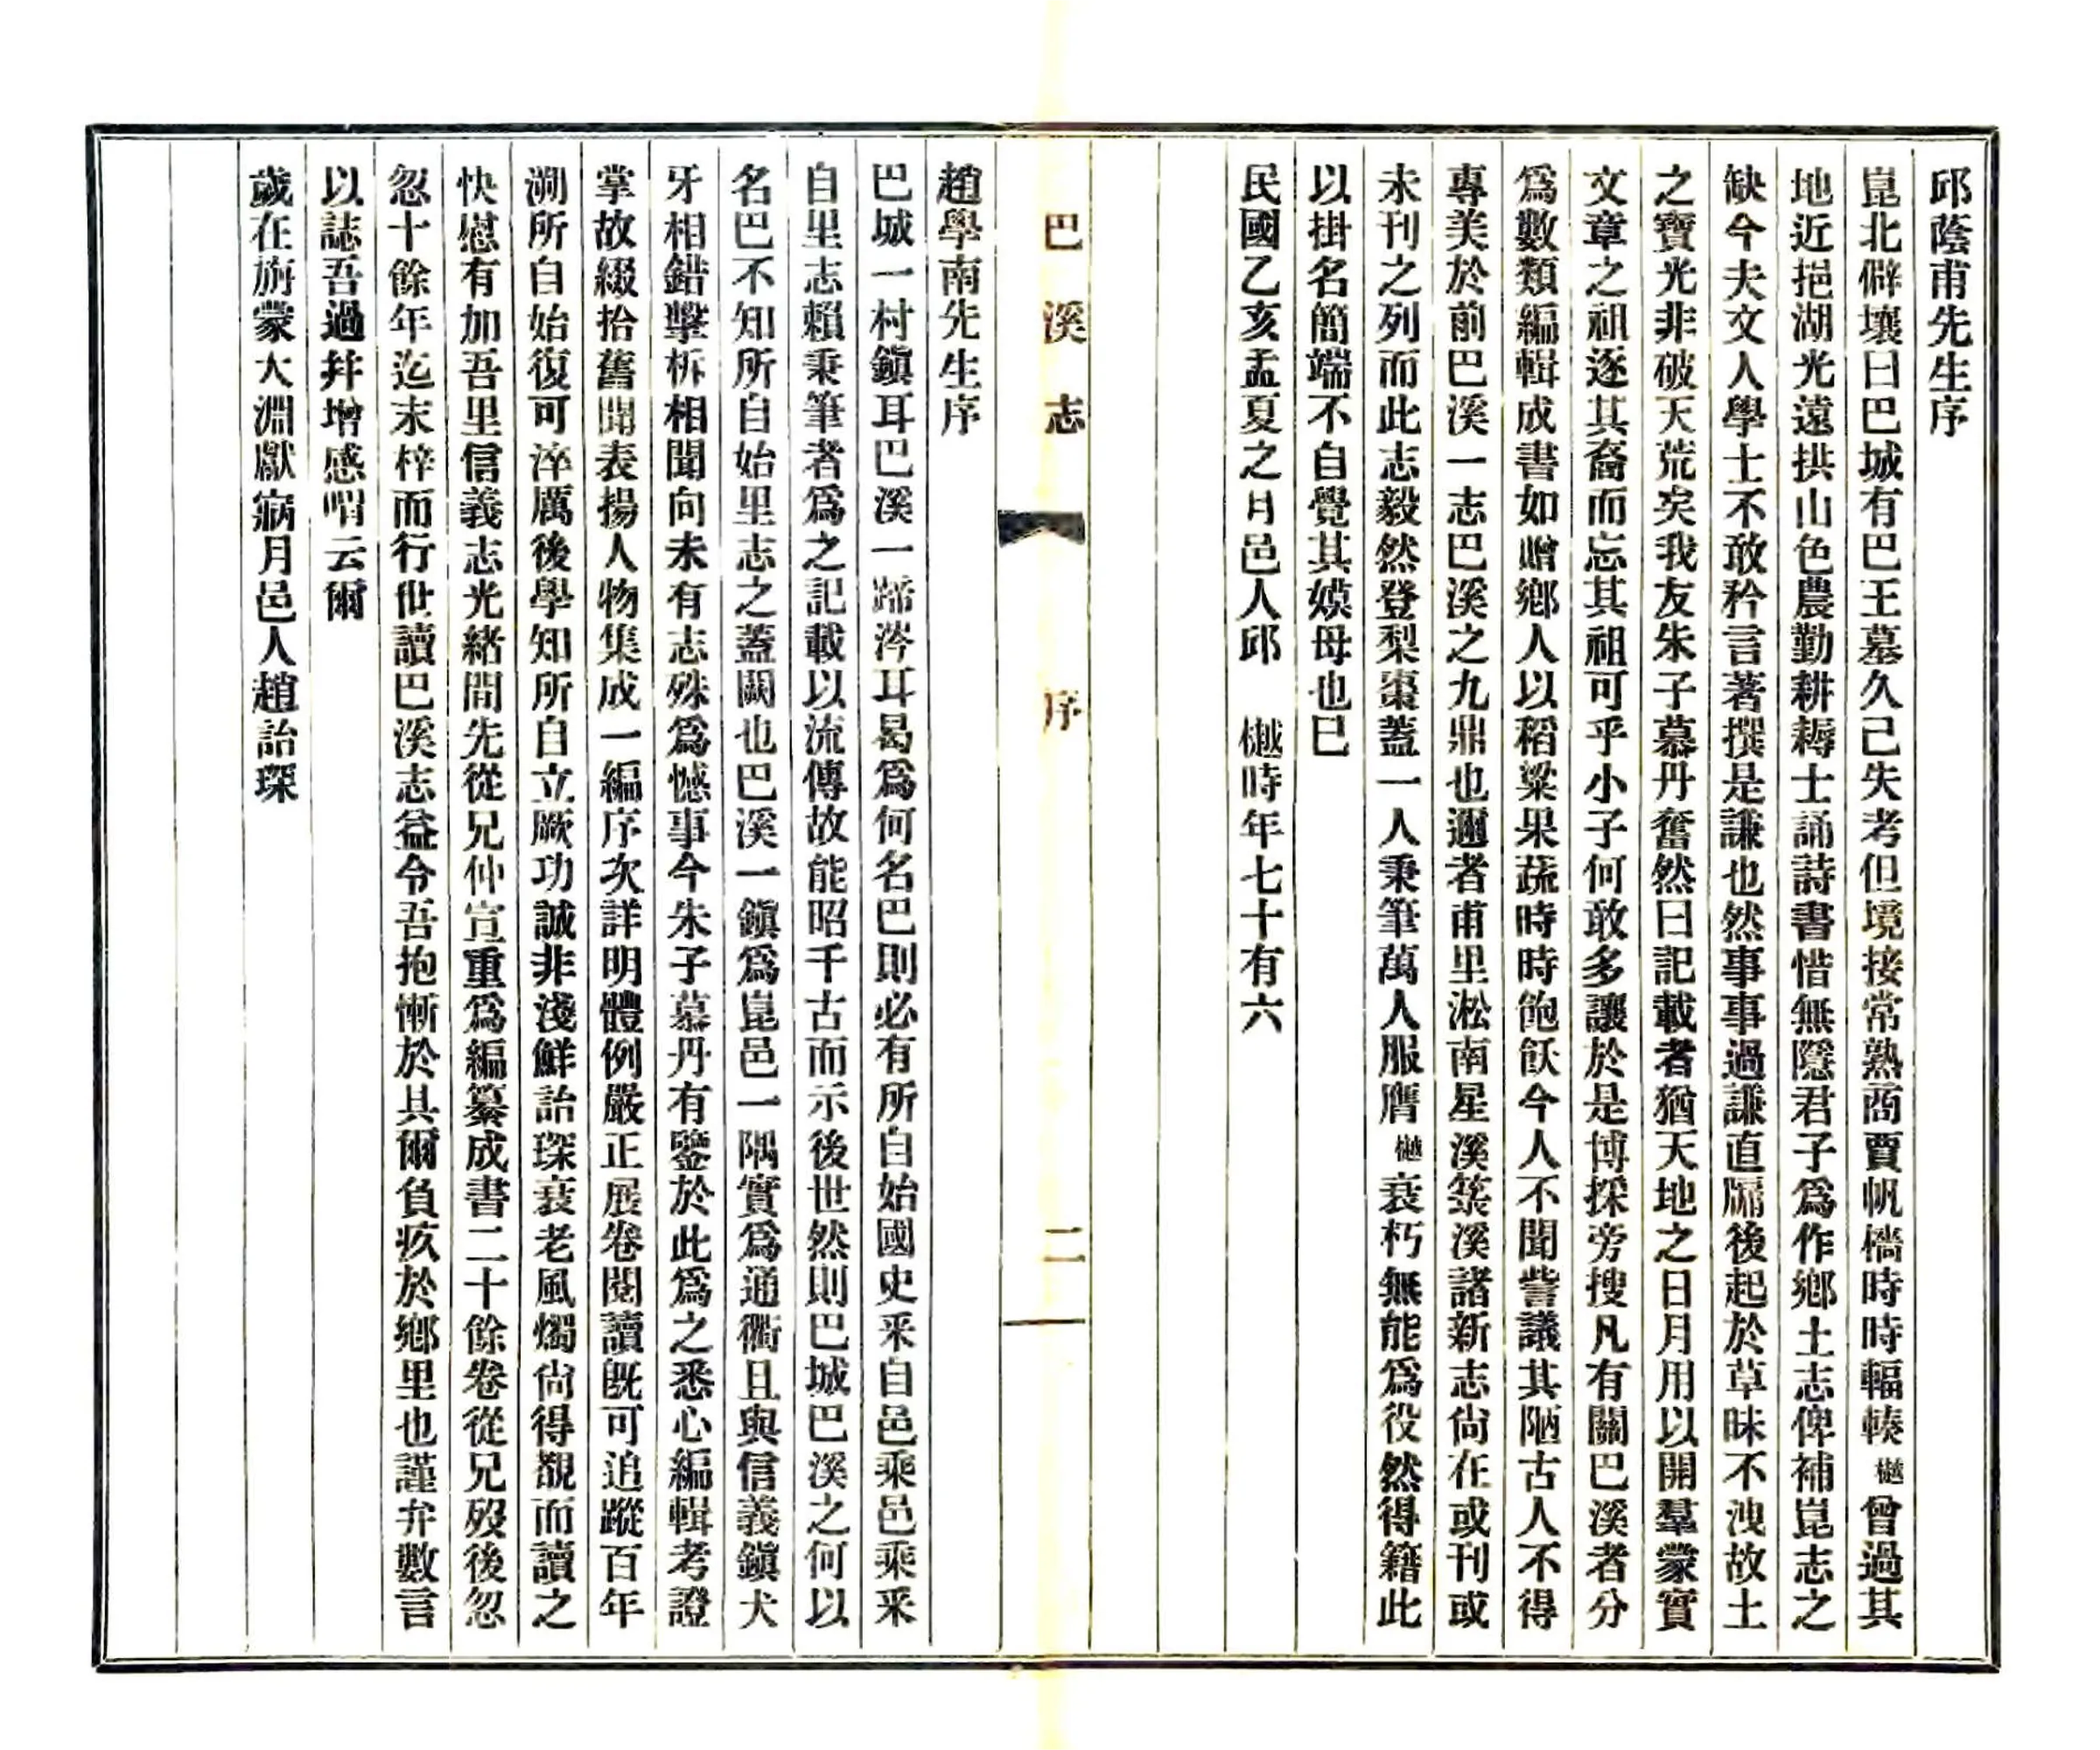 邱蔭甫先生序
崑北僻壤曰巴城有巴王墓久已失考但境接常熟商賈帆檣時時輻輳樾曾過其
地近挹湖光遠拱山色農勤耕耨士誦詩書惜無隱君子爲作鄉土志俾補崑志之
缺今夫文人學士不敢矜言著撰是謙也然事事過謙直牖後起於草昧不洩故土
之寶光非破天荒矣我友朱子慕丹奮然曰記載者猶天地之日月用以開羣蒙實
文章之祖逐其裔而忘其祖可乎小子何敢多讓於是博採旁搜凡有關巴溪者分
爲數類編輯成書如贈鄉人以稻粱果蔬時時飽飫今人不聞訾議其陋古人不得
專美於前巴溪一志巴溪之九鼎也邇者甫里淞南星溪菉溪諸新志尙在或刊或
未刊之列而此志毅然登梨棗蓋一人秉筆萬人服膺樾衰朽無能爲役然得籍此
以掛名簡端不自覺其嫫母也巳
民國乙亥孟夏之月邑人邱　樾時年七十有六
巴溪志　序　二
趙學南先生序
巴城一村鎭耳巴溪一蹄涔耳曷爲何名巴則必有所自始國史釆自邑乘邑乘釆
自里志賴秉筆者爲之記載以流傳故能昭千古而示後世然則巴城巴溪之何以
名巴不知所自始里志之蓋闕也巴溪一鎭爲崑邑一隅實爲通衢且與信義鎭犬
牙相錯擊柝相聞向未有志殊爲憾事今朱子慕丹有鑒於此爲之悉心編輯考證
掌故綴拾舊聞表揚人物集成一編序次詳明體例嚴正展卷閱讀旣可追蹤百年
溯所自始復可淬厲後學知所自立厥功誠非淺鮮詒琛衰老風燭尙得覩而讀之
快慰有加吾里信義志光緒間先從兄仲宣重爲編纂成書二十餘卷從兄歿後忽
忽十餘年迄末梓而行世讀巴溪志益令吾抱慚於具爾負疚於鄉里也謹弁數言
以誌吾過幷增感喟云爾
歲在旃蒙大淵獻病月邑人趙詒琛